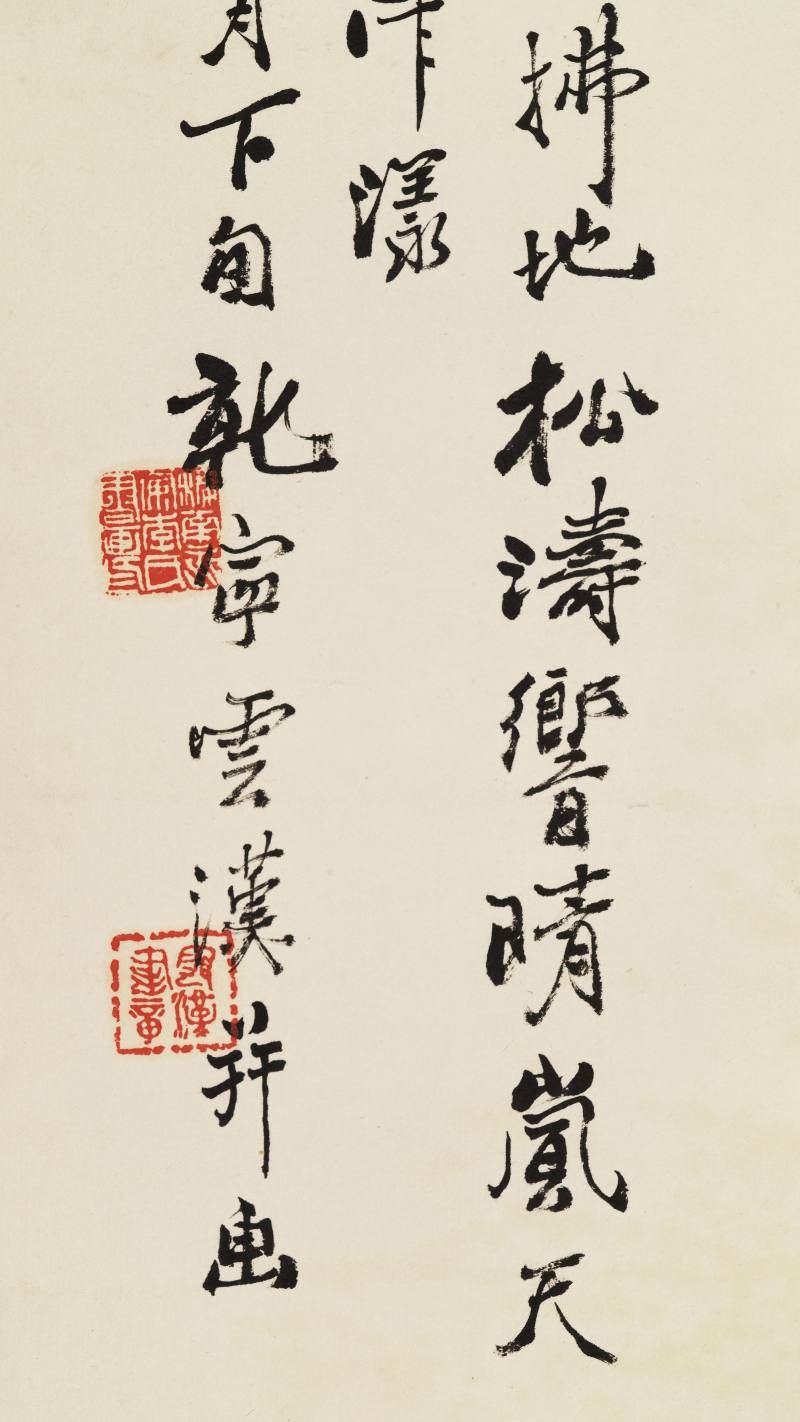 拂地松濤響晴嵐天
漾
月下旬乾寧雲漢并画